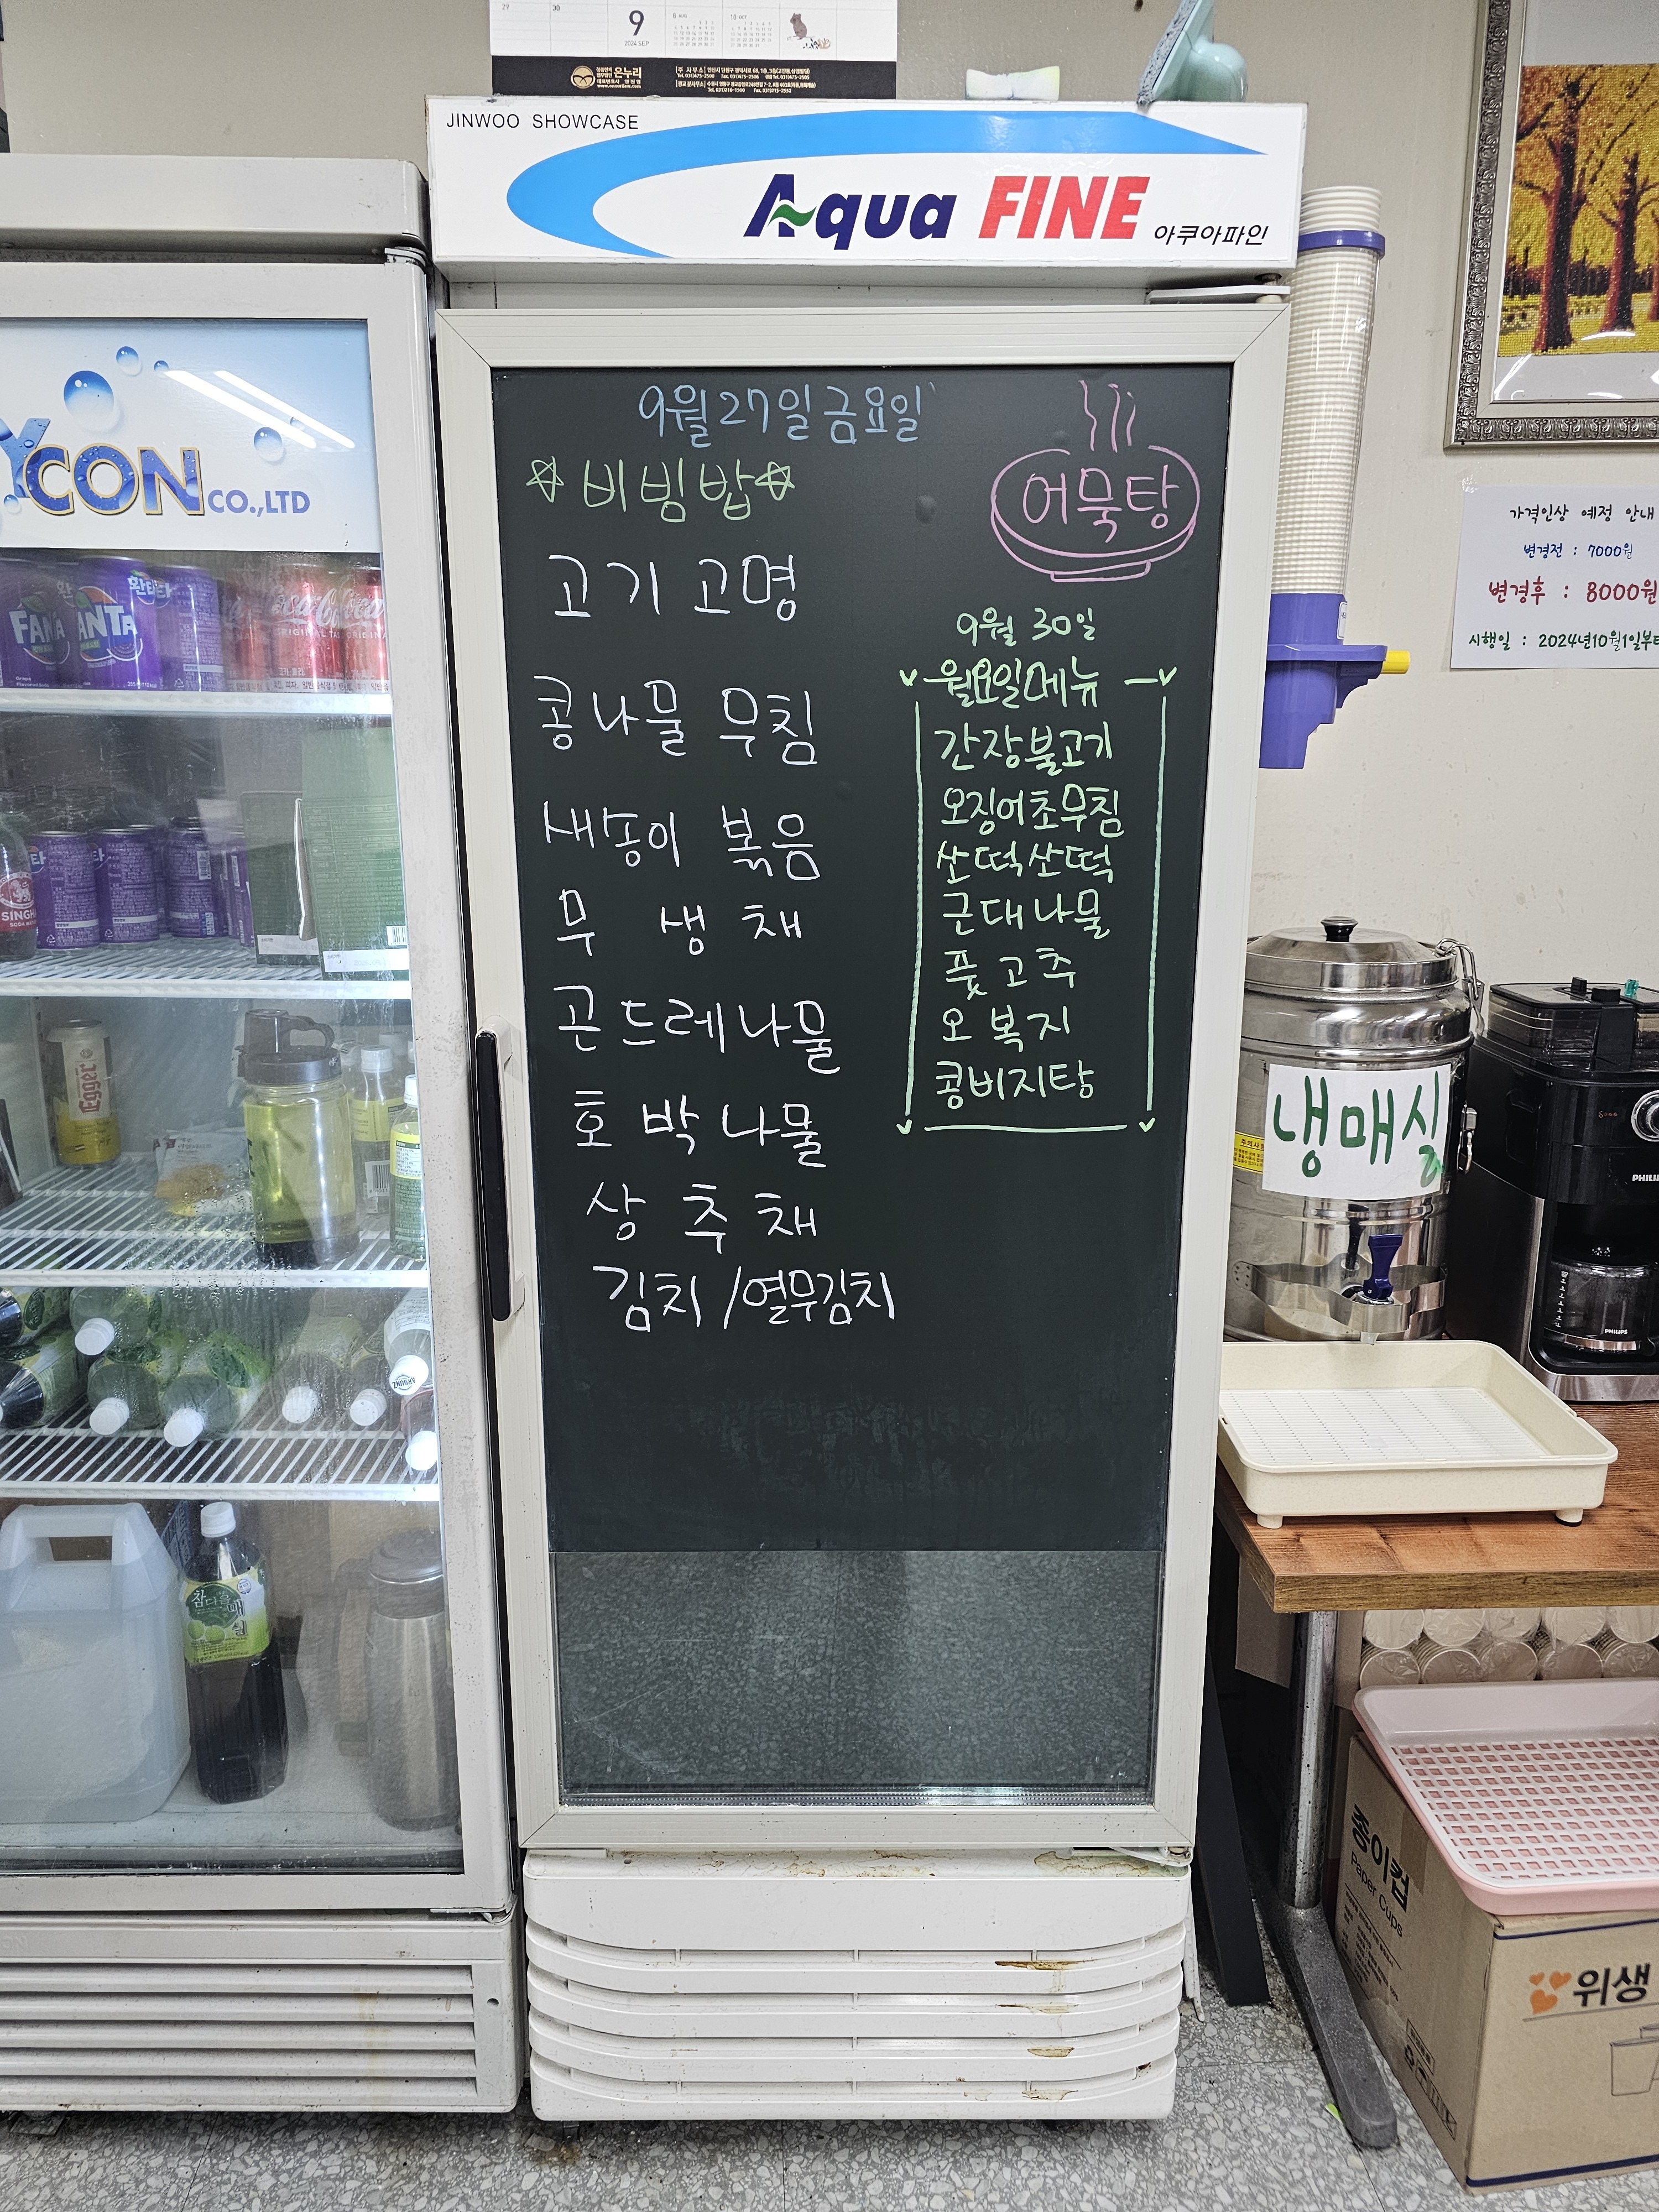 29 30
9
2024 SEP
8 AUG
10 OCT
온누리
JINWOO SHOWCASE
Aqua FINE 아쿠아파인
YCON CO.,LTD
9월 27일 금요일
☆비빔밥☆
어묵탕
고기 고명
콩나물 무침
새송이 볶음
무 생 채
곤드레나물
호박나물
상 추 채
김치/열무김치
9월 30일
월요일메뉴
간장불고기
오징어초무침
쏘떡쏘떡
근대나물
풋고추
오복지
콩비지탕
가격인상 예정 안내
변경전 : 7000원
변경후 : 8000원
시행일 : 2024년10월1일부터
냉매실
PHILIPS
종이컵
Paper Cups
위생
환타
FANTA
Coca-Cola
ORIGINAL TASTE
SINGHA
Egger
참다올
매실